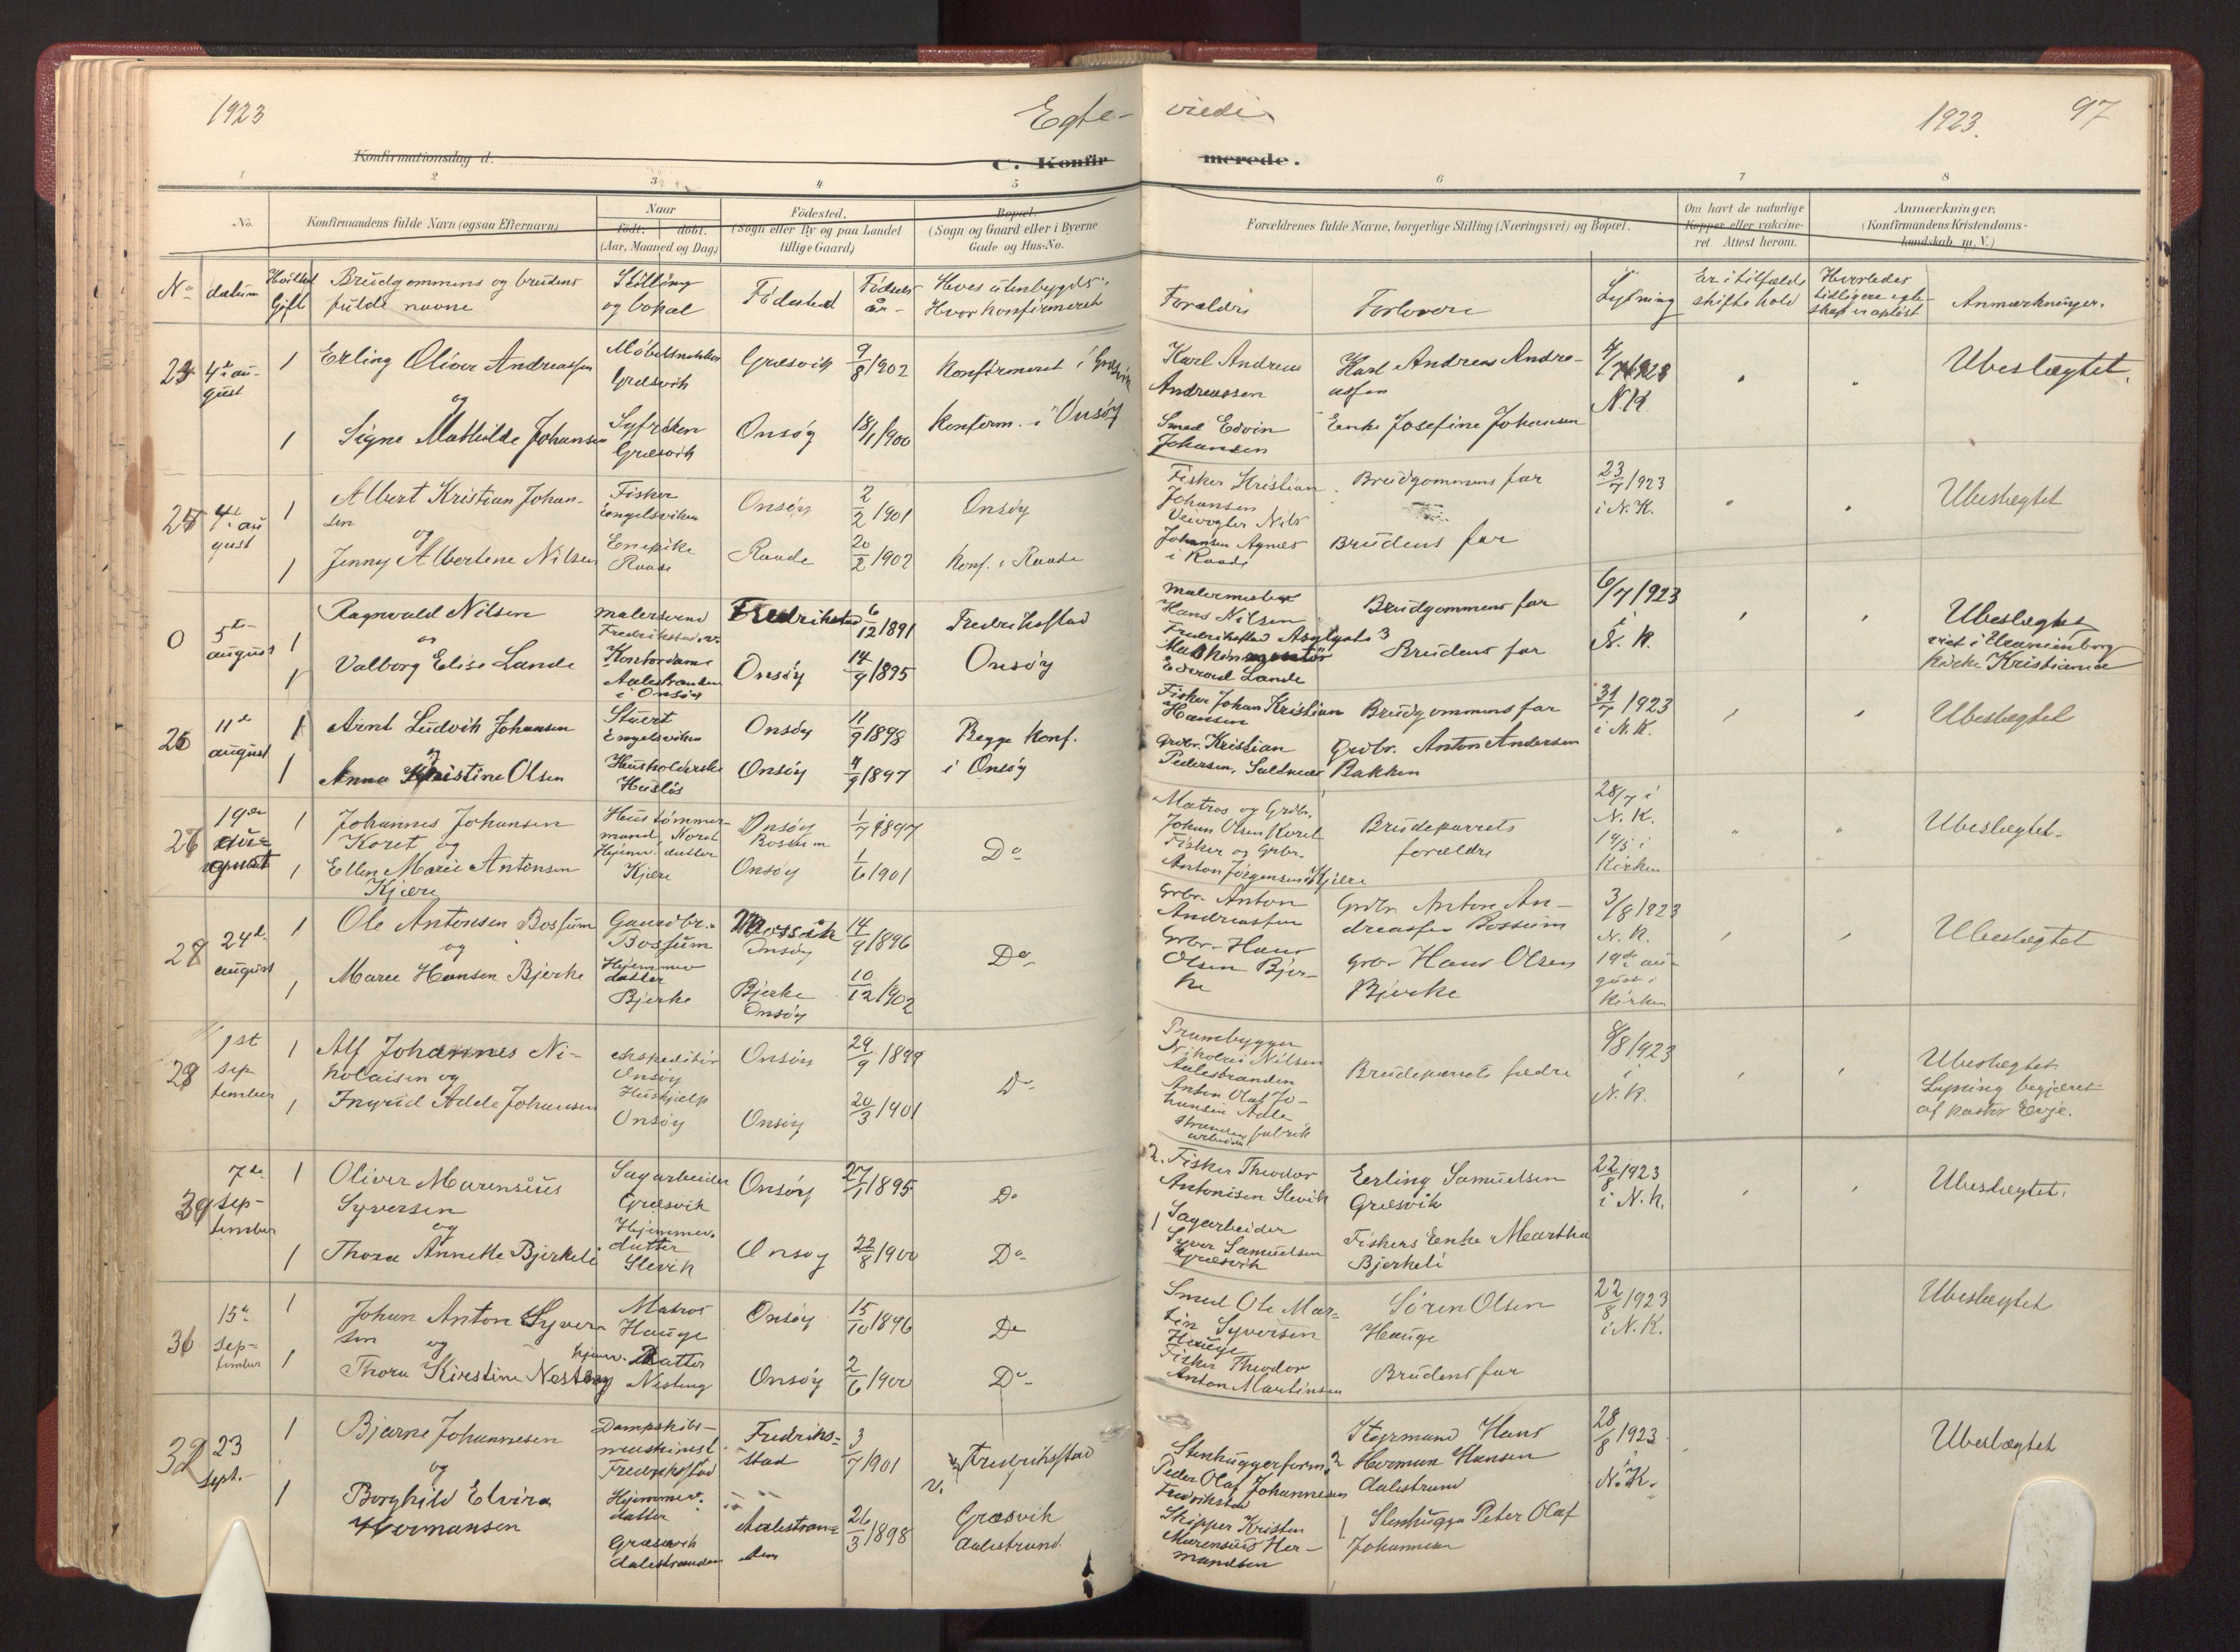 1923
Egte-
viede
1923.
97
Konfirmationsdag d.
C. Konfir
merede.
1 2 3 4 5 6 7 8
No.
Konfirmandens fulde Navn (ogsaa Efternavn)
Naar
født. døbt.
(Aar, Maaned og Dag)
Fødested.
(Sogn eller By og paa Landet
tillige Gaard)
Bopæl.
(Sogn og Gaard eller i Byerne
Gade og Hus-No.
Forældrenes fulde Navne, borgerlige Stilling (Næringsvei) og Bopæl.
Om havt de naturlige
Kopper eller vakcine-
ret Attest herom.
Anmærkninger.
(Konfirmandens Kristendoms-
kundskab m. V.)
No
datum
Gift
Brudgommens og brudens
fulde navne
Stilling
og bopæl
Fødested
Fødsels
år
Hves utenbygds:
Hvor konfirmeret
Forældre
Forlovere
Lysning
Er i tilfælde
skifte hold
Hvorledes
tidligere egte-
skap er opløst
Anmærkninger.
4de au-
gust
1
Erling Oliver Andreassen
Møbelsnekker
Græsvik
Græsvik
9/8 1902
Konfirmeret i Græsvik
Karl Andreas
Andreassen
Karl Andreas Andre-
assen
N.K.
Ubeslægtet.
og
1
Signe Mathilde Johansen
Syfrøken
Græsvik
Onsøy
18/1 1900
Konferm. i Onsøy
Smed Edvin
Johansen
Enke Josefine Johansen
4de au
gust
1
Albert Kristian Johan-
sen
Fisker
Engelsviken
Onsøy
2/2 1901
Onsøy
Fisker Kristian
Johansen
Brudgommens far
23/7 1923
i N.K.
Ubeslægtet
og
1
Jenny Albertene Nilsen
Enepike
Raade
Raade
20/2 1902
Konf. i Raade
Nils
Johansen
i Raade
Brudens far
0
5te
august
1
Ragnvald Nilsen
malersvend
Fredrikstad
Fredrikstad
6/12 1891
Fredrikstad
malermester
Hans Nilsen
Fredrikstad
Brudgommens far
6/7 1923
i
N.K.
Ubeslægtet
viet i Uranienborg
kirke Kristiania
og
1
Valborg Elise Lande
Kontordame
Aalestranden
i Onsøy
Onsøy
14/9 1895
Onsøy
Maskinmontør
Edvard Lande
Brudens far
26
11te
august
1
Arnt Ludvik Johansen
Stuert
Engelsviken
Onsøy
11/9 1898
Begge konf.
i Onsøy
Fisker Johan Kristian
Hansen
Brudgommens far
31/7 1923
i N.K.
Ubeslægtet
og
1
Anna Kristine Olsen
Husholderske
Onsøy
4/9 1897
Grdbr. Kristian
Pedersen,
Grdbr. Anton Andersen
Bakken
19de
august
1
Johannes Johansen
Koret og
Hustømmer-
mand
Onsøy
1/7 1897
Do
Matros og Grdbr.
Johan Olsen Koret
Brudeparrets
forældre
28/7 i
N.K.
i
Kirken
Ubeslægtet.
1
Ellen Marie Antonsen
Kjære
Hjemmev. datter
Kjære
Onsøy
1/6 1901
Fisker og Grbr.
Anton Jørgensen Kjære
24de
august
1
Ole Antonsen Bossum
Gaardbr.
Bossum
Onsøy
14/9 1896
Do
Grbr. Anton
Andreassen
Grdbr. Anton An-
dreassen Bossum
3/8 1923
N.K.
19de au-
gust i
Kirken
Ubeslægtet
og
1
Marie Hansen Bjerke
Hjemmev
datter
Bjerke
Bjerke
Onsøy
10/12 1902
Grbr. Hans
Olsen Bjer-
ke
Grbr. Hans Olsen
Bjerke
1st
sep
tember
1
Alf Johannes Ni-
kolaisen og
ekspeditør
Onsøy
Onsøy
29/9 1899
Do
Prambygger
Nikolai Nilsen
Aalestranden
Brudeparrets fædre
8/8 1923
i
N.K.
Ubeslægtet
Lysning begjæret
af pastor Evje.
1
Ingrid Adele Johansen
Hushjælp
Onsøy
Onsøy
20/3 1901
Anton Olaf Jo-
hansen Aale
stranden fabrik
arbeider
7de
sep-
tember
1
Oliver Marensius
Syversen
Sagarbeider
Græsvik
Onsøy
27/1 1895
Do
2. Fisker Theodor
Antonisen Slevik
Erling Samuelsen
Græsvik
22/8 1923
i N.K.
Ubeslægtet.
og
1
Thora Annette Bjerkeli
Hjemmev.
datter
Slevik
Onsøy
22/8 1900
Do
1 Sagarbeider
Syver Samuelsen
Græsvik
Fiskers Enke Martha
Bjerkeli
15de
sep-
tember
1
Johan Anton Syver
sen og
Matros
Hauge
Onsøy
15/10 1896
Do
Smed Ole Mar-
tin Syversen
Hauge
Søren Olsen
Hauge
22/8 1923
i N.K.
Ubeslægtet
1
Thora Kirstine Nesteng
hjemv. Datter
Nesteng
Onsøy
2/6 1900
Do
Fisker Theodor
Anton Martinsen
Brudens far
23
sept.
1
Bjarne Johannesen
Dampskibs-
maskinist
Fredrikstad
Fredrik-
stad
3/7 1901
Fredriksstad
Stenhuggerform.
Peder Olaf Johannesen
Fredrikstad
Styrmand Hans
Herman Hansen
Aalestrand
28/8 1923
i
N.K.
Ubeslægtet
og
1
Borghild Elvira
Hermansen
Hjemmev.
datter
Græsvik
Aalestranden
Aalestran-
den
26/3 1898
Græsvik
Aalestrand.
Skipper Kristen
Marensius Her-
mandsen
1 Stenhugger Peter Olaf
Johannesen